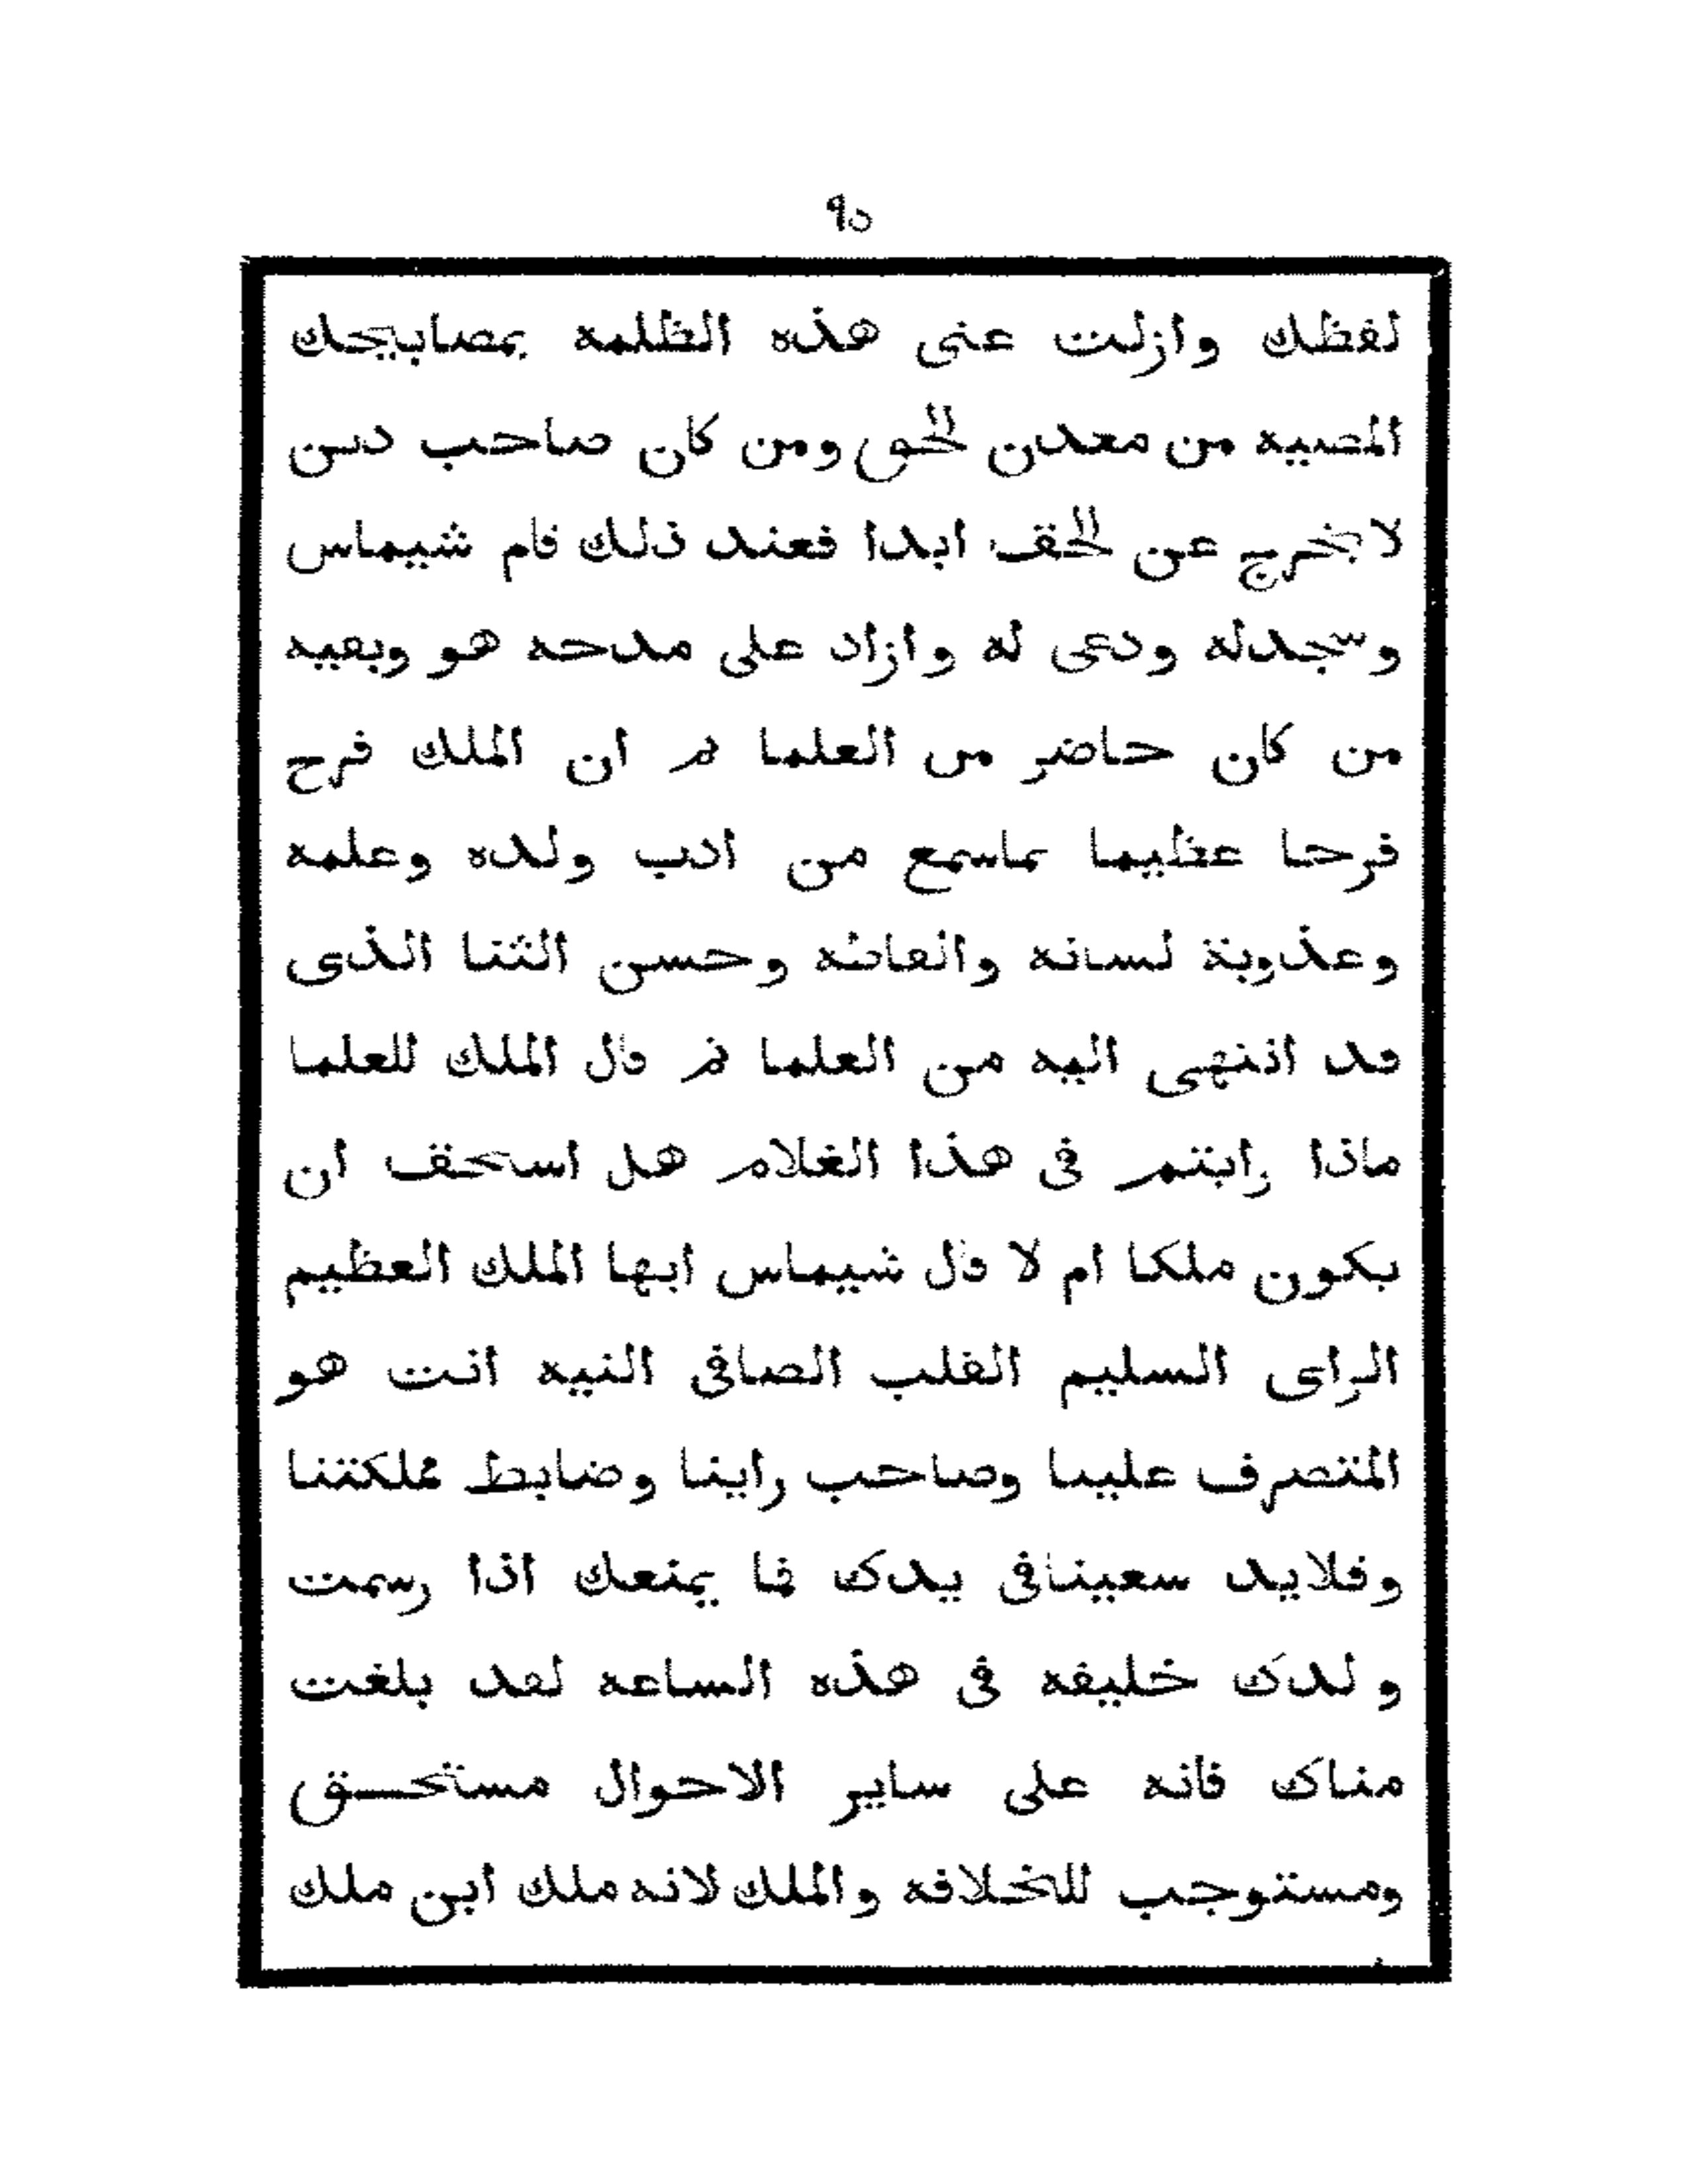 ٩٥
لفظك وازلت عنى هذه الظلمه بمصابيحك
المضيه من معدن الحق ومن كان صاحب دين
لا يخرج عن الحق ابدا فعند ذلك قام شيماس
وسجدله ودعى له وازاد على مدحه هو وبقيه
من كان حاضر من العلما ثم ان الملك فرح
فرحا عظيما بماسمع من ادب ولده وعلمه
وعذوبة لسانه والفاظه وحسن الثنا الذى
قد انتهى اليه من العلما ثم قال الملك للعلما
ماذا رايتم فى هذا الغلام هل استحق ان
يكون ملكا ام لا قال شيماس ايها الملك العظيم
الراى السليم القلب الصافى النيه انت هو
المتصرف علينا وصاحب راينا وضابط مملكتنا
وقلايد سعينافى يدك فما يمنعك اذا رسمت
ولدك خليفه فى هذه الساعه لقد بلغت
مناك فانه على ساير الاحوال مستحق
ومستوجب للخلافه والملك لانه ملك ابن ملك